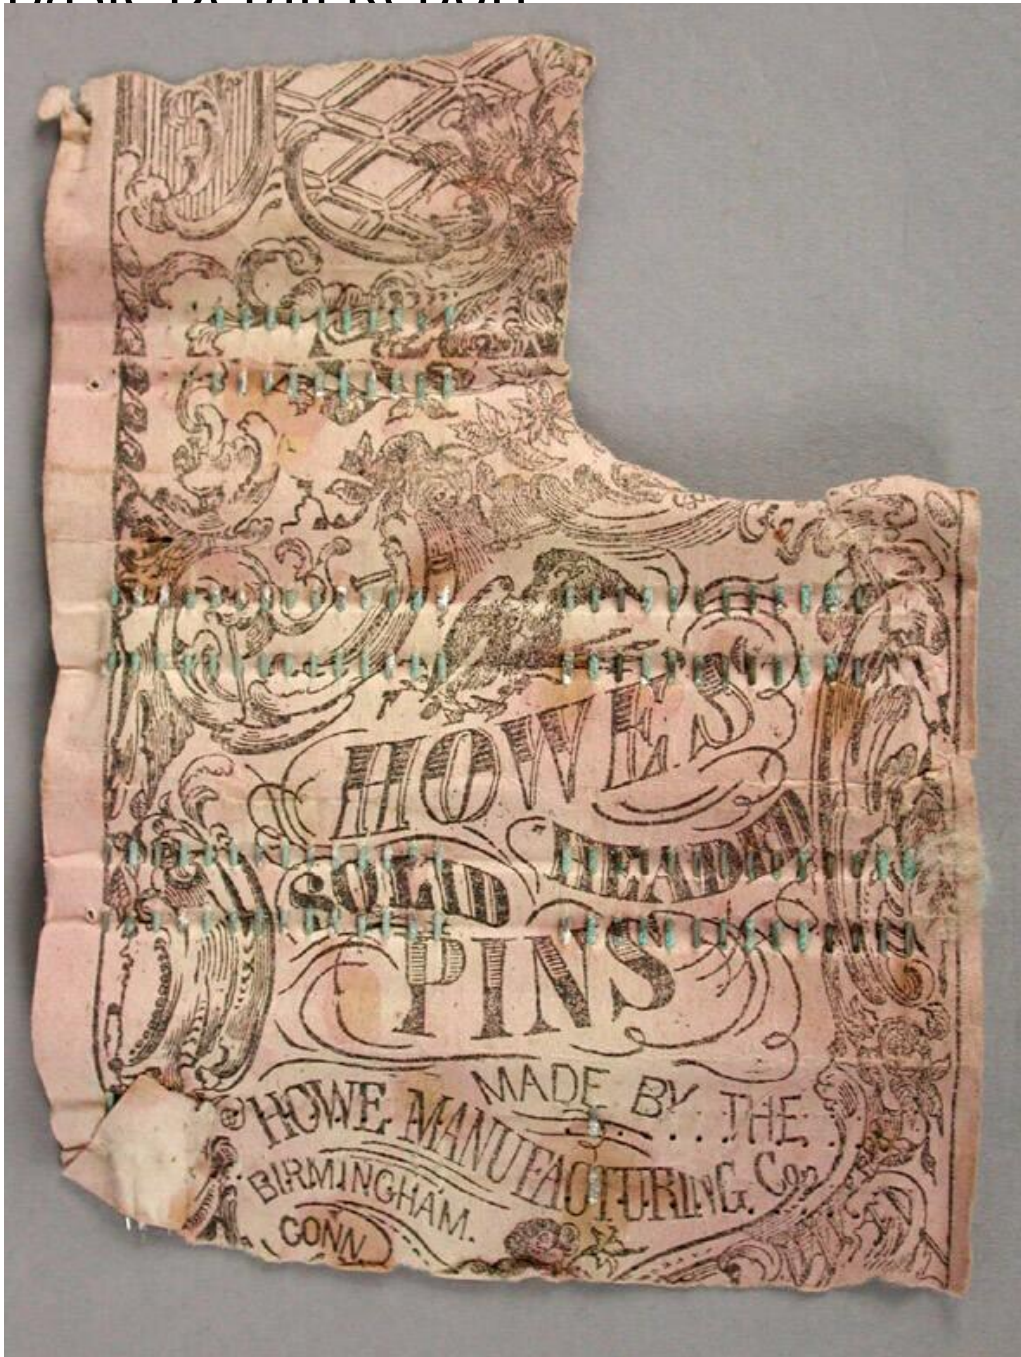 HOWE'S
SOLID HEADED
PINS
MADE BY THE
HOWE MANUFACTURING Co
BIRMINGHAM.
CONN